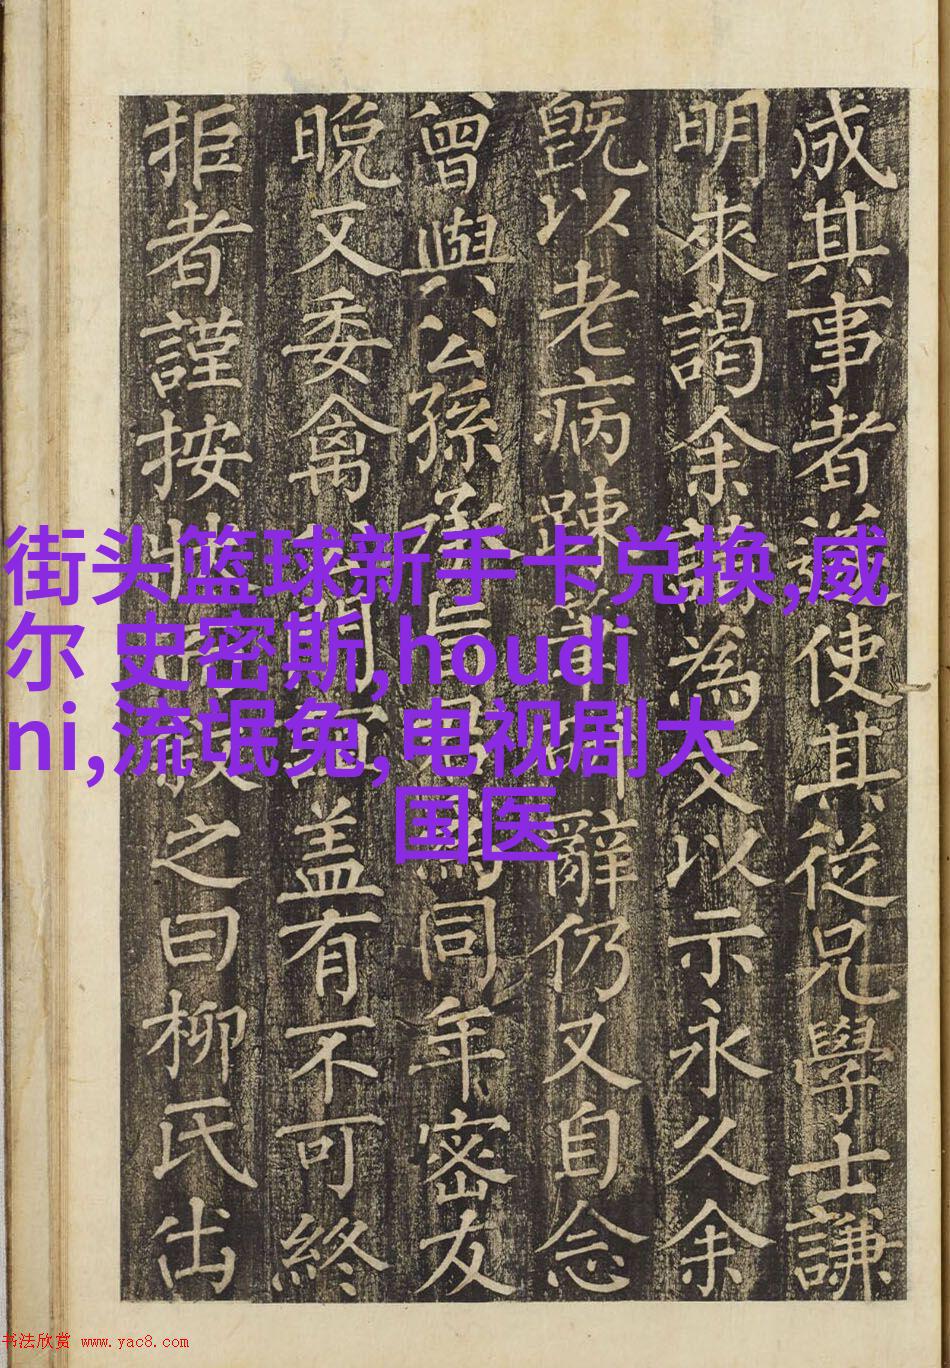 成其事者使其從兄學士謙
明來謁余請為文以示永久余
既以老病踈筆辭仍又自念
曾與公孫同年密友
晚又委禽盖有不可終
拒者謹按之曰柳氏出
街头篮球新手卡兑换,威
尔 史密斯,houdi
ni,流氓兔,电视剧大
国医
书法欣赏 www.yac8.com